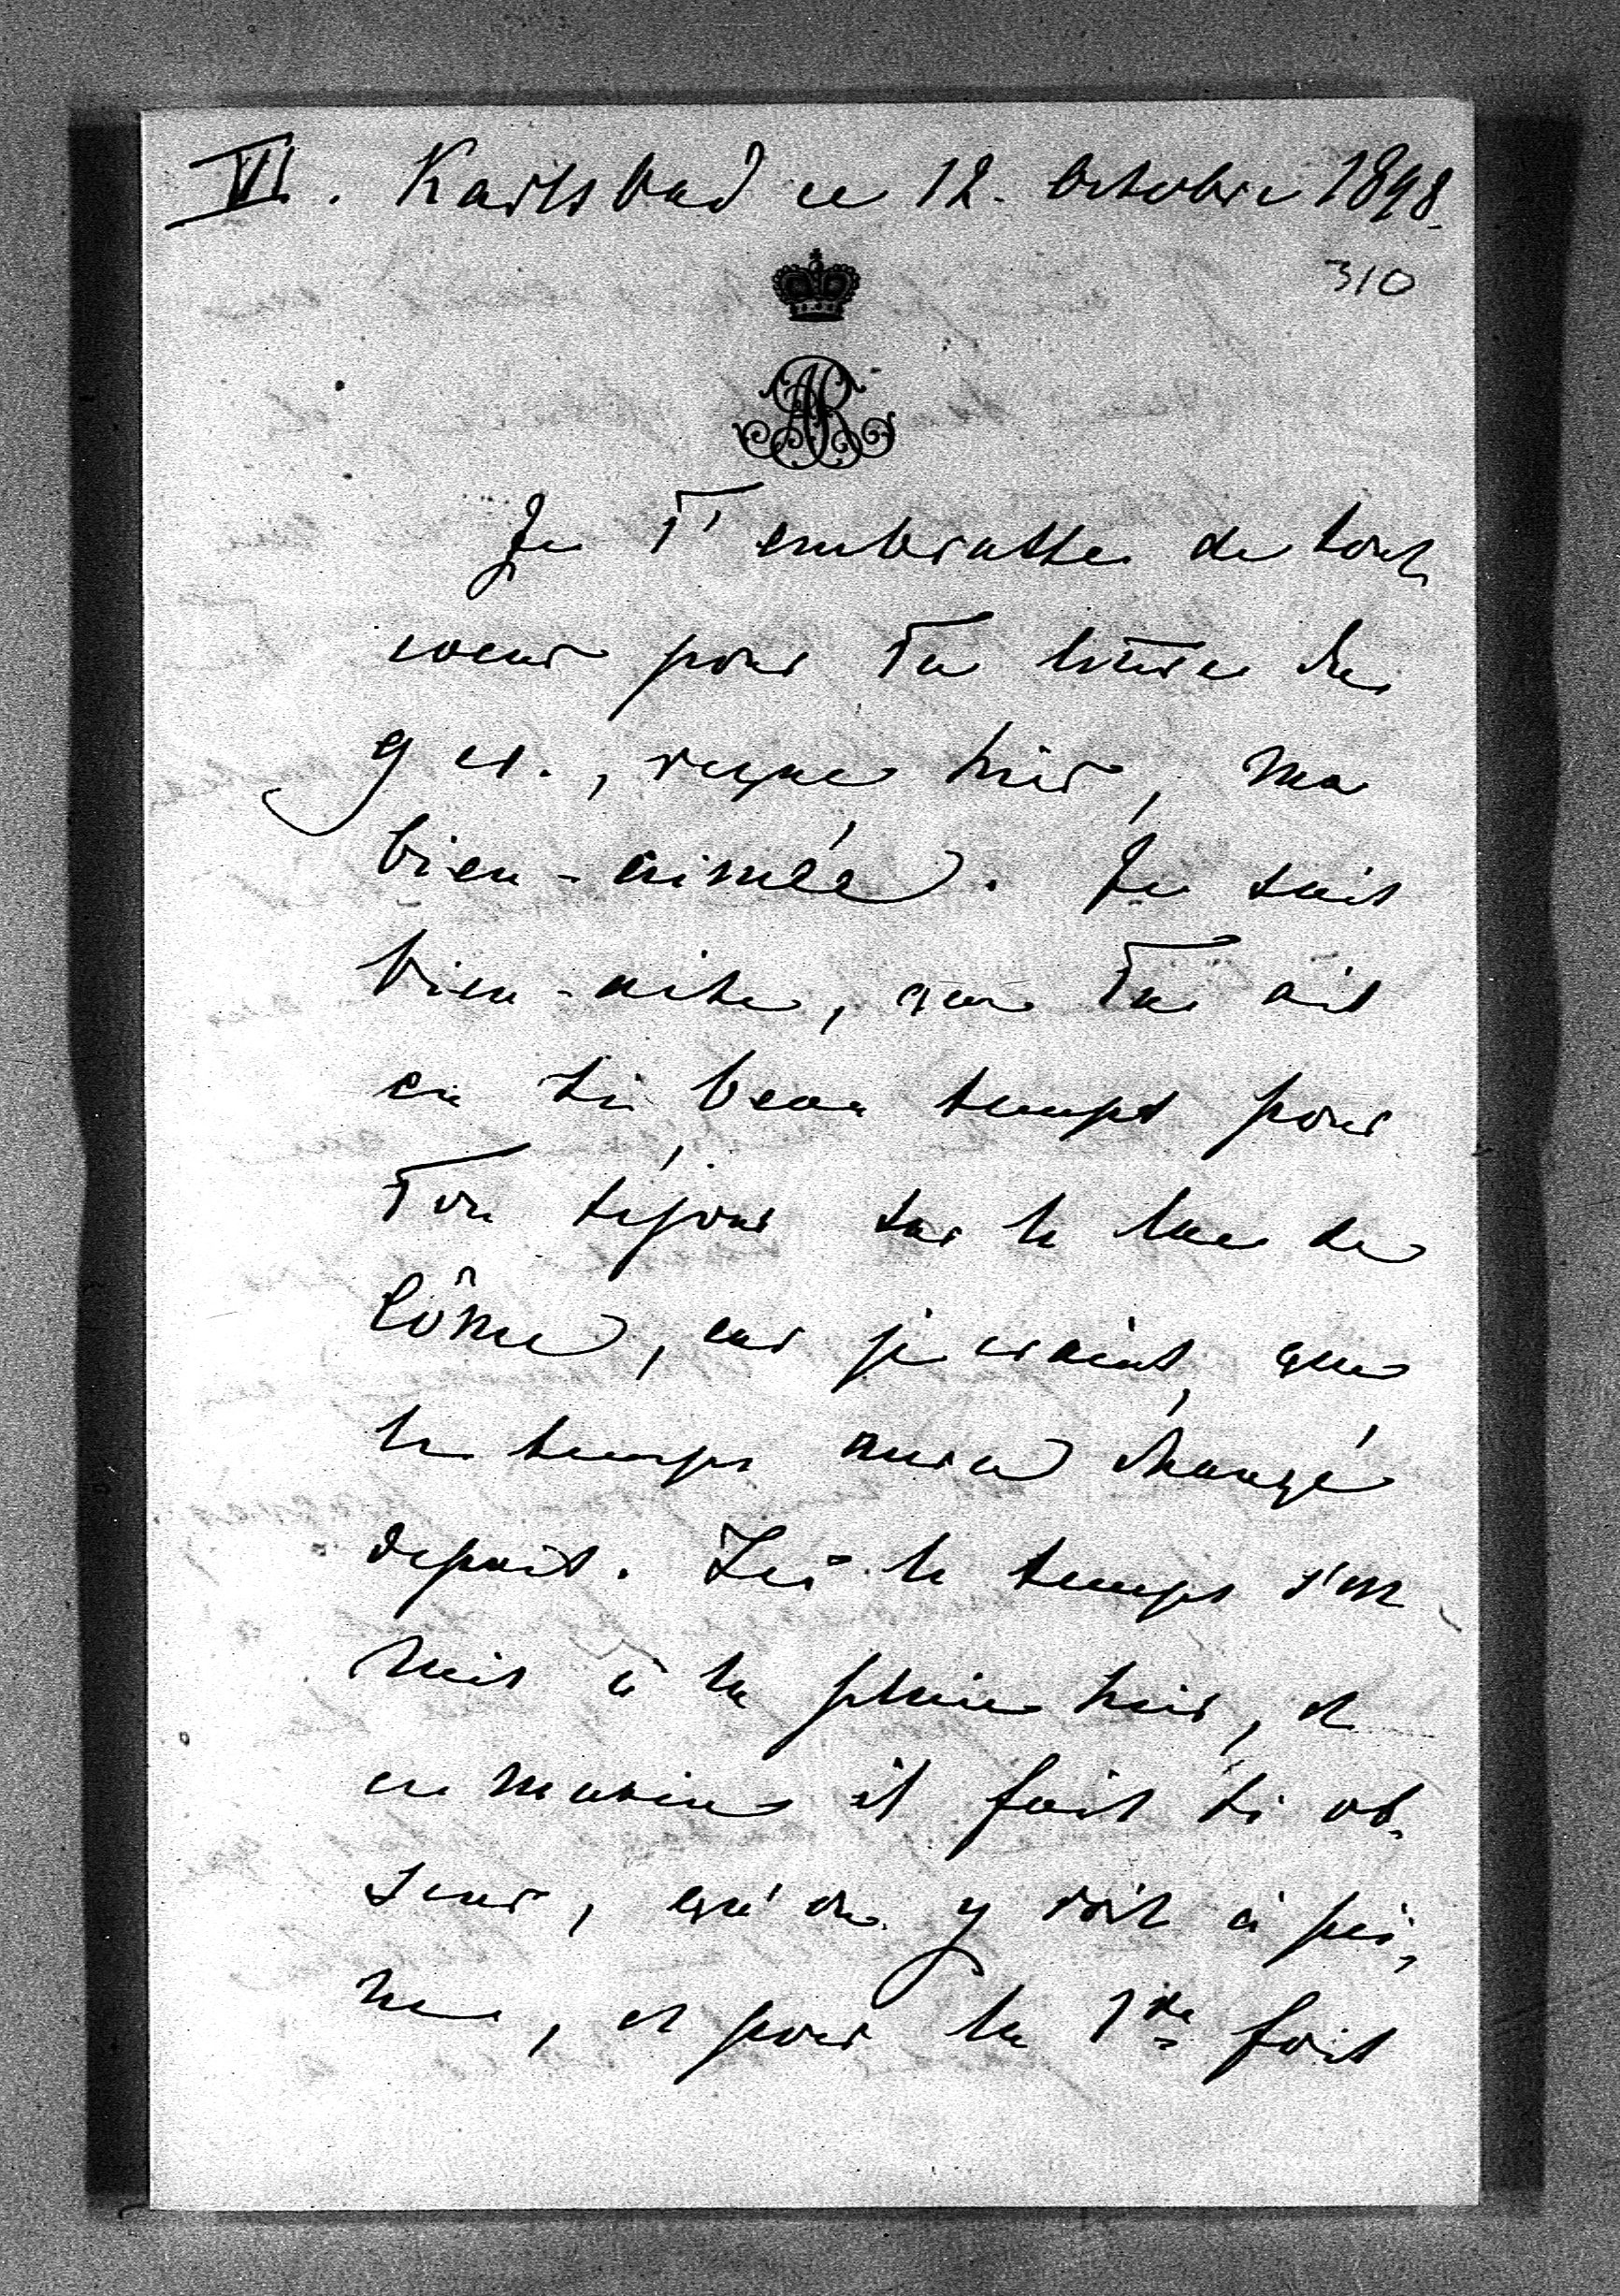 VI. Karlsbad ce 12. Octobre 1898.
310
AR
Je T'embrasse de tout
coeur pour Ta lettre du
9 cr., reçue hier, ma
bien-aimée. Je suis
bien-aise, que Tu ais
eu si beau temps pour
Ton séjour sur le lac de
Côme, car je crains, que
le temps aura changé
depuis. Ici le temps s'est
mis à la pluie hier, et
ce matin il fait si ob-
scur, qu'on y voit à pei-
ne, et pour la 1re fois